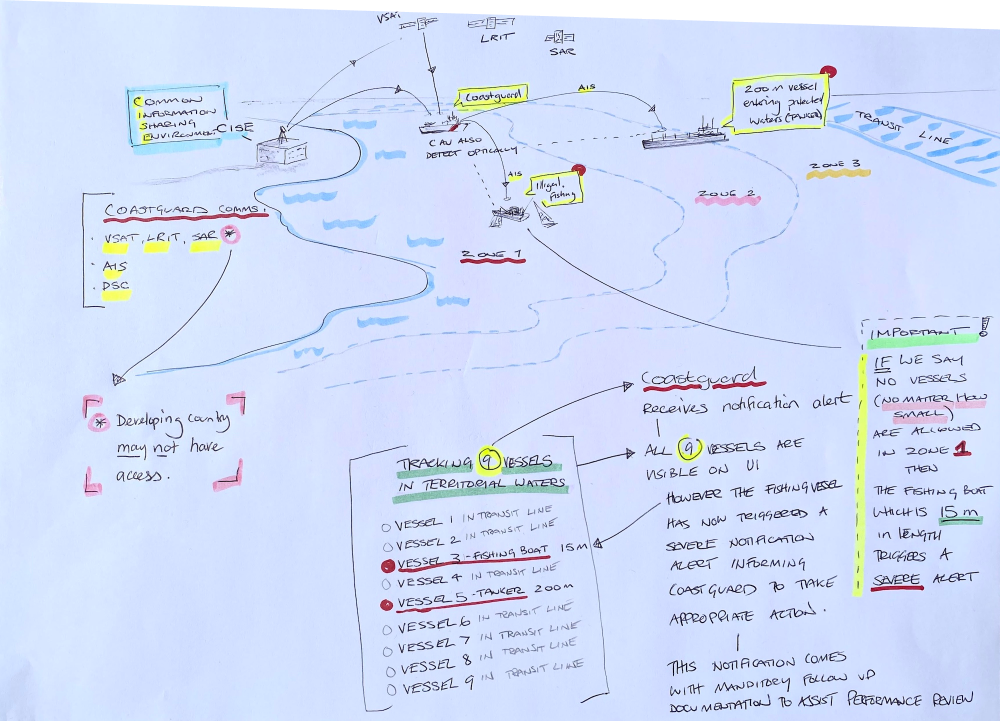 VSAT
LRIT
SAR
COMMON
INFORMATION
SHARING
ENVIRONMENT
CISE
Coastguard
CAN ALSO
DETECT OPTICALLY
AIS
200m VESSEL
entering protected
Waters (TANKER)
TRANSIT LINE
AIS
Illegal
fishing
ZONE 1
ZONE 2
ZONE 3
COASTGUARD COMMS.
· VSAT, LRIT, SAR *
· AIS
· DSC
* Developing country
may not have
access.
TRACKING 9 VESSELS
IN TERRITORIAL WATERS
VESSEL 1 IN TRANSIT LINE
VESSEL 2 IN TRANSIT LINE
VESSEL 3 - FISHING BOAT 15M
VESSEL 4 IN TRANSIT LINE
VESSEL 5 - TANKER 200m
VESSEL 6 IN TRANSIT LINE
VESSEL 7 IN TRANSIT LINE
VESSEL 8 IN TRANSIT LINE
VESSEL 9 IN TRANSIT LINE
Coastguard
Receives notification alert
ALL 9 VESSELS ARE
VISIBLE ON UI
HOWEVER THE FISHING VESSEL
HAS NOW TRIGGERED A
SEVERE NOTIFICATION
ALERT INFORMING
COASTGUARD TO TAKE
APPROPRIATE ACTION.
THIS NOTIFICATION COMES
WITH MANDITORY FOLLOW UP
DOCUMENTATION TO ASSIST PERFORMANCE REVIEW
IMPORTANT !
IF WE SAY
NO VESSELS
(NO MATTER HOW
SMALL)
ARE ALLOWED
IN ZONE 1
THEN
THE FISHING BOAT
WHICH IS 15m
in LENGTH
TRIGGERS A
SEVERE ALERT